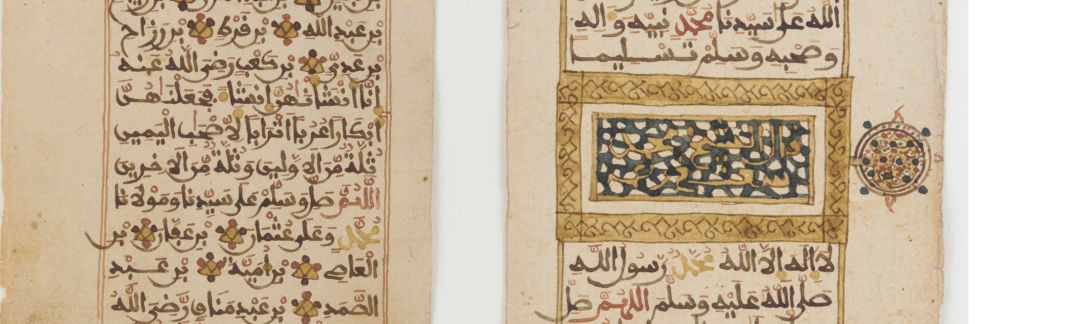 الله على سيدنا محمد نبيه واله
وصحبه وسلم تسليما
لا اله الا الله محمد رسول الله
صلى الله عليه وسلم اللهم صل
بن عبد الله بن قرط بن رزاح
بن عدي بن كعب رضي الله عنه
انا انشاناهن انشاء فجعلناهن
ابكارا عربا اترابا لاصحب اليمين
ثلة من الاولين وثلة من الاخرين
اللهم صل وسلم على سيدنا ومولانا
محمد وعلى عثمان بن عفان بن
العاصي بن امية بن عبد
الصمد بن عبد مناف رضي الله